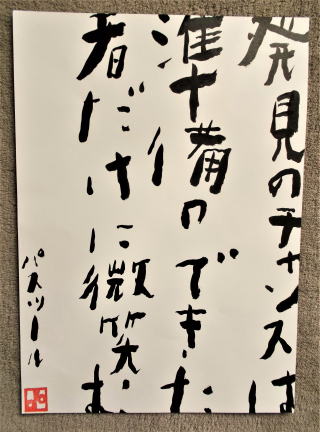 発見のチャンスは
準備のできた
者だけに微笑む
パスツール